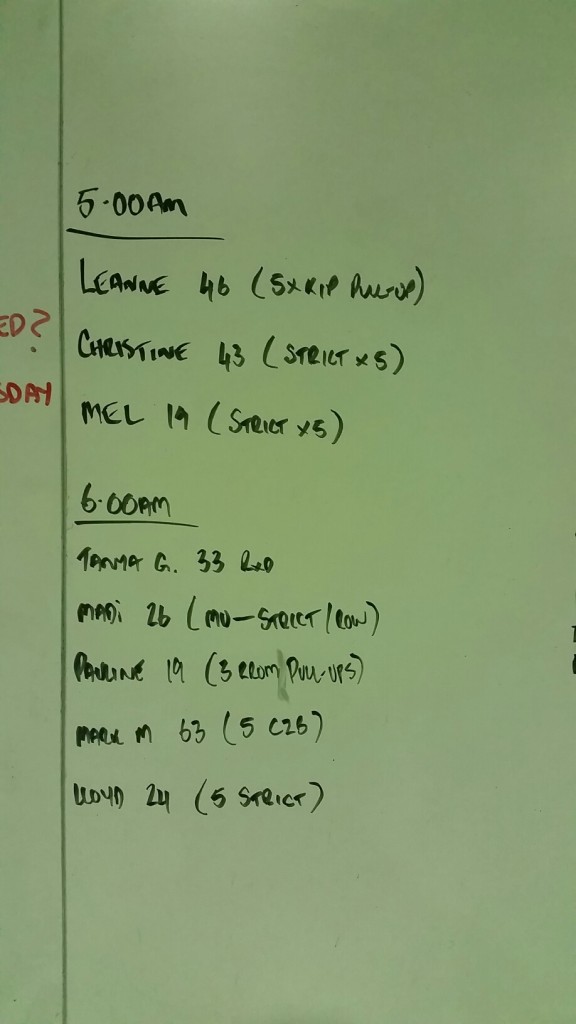 5.00AM
LEANNE 46 (5xKIP PULL-UP)
ED?
CHRISTINE 43 (STRICT x 5)
SDAY
MEL 19 (STRICT x5)
6.00AM
TANYA G. 33 RxD
MADi 26 (MU-STRICT/ROW)
PAULINE 19 (3 RROM PULL-UPS)
MARK M 63 (5 C2B)
LLOYD 24 (5 STRICT)